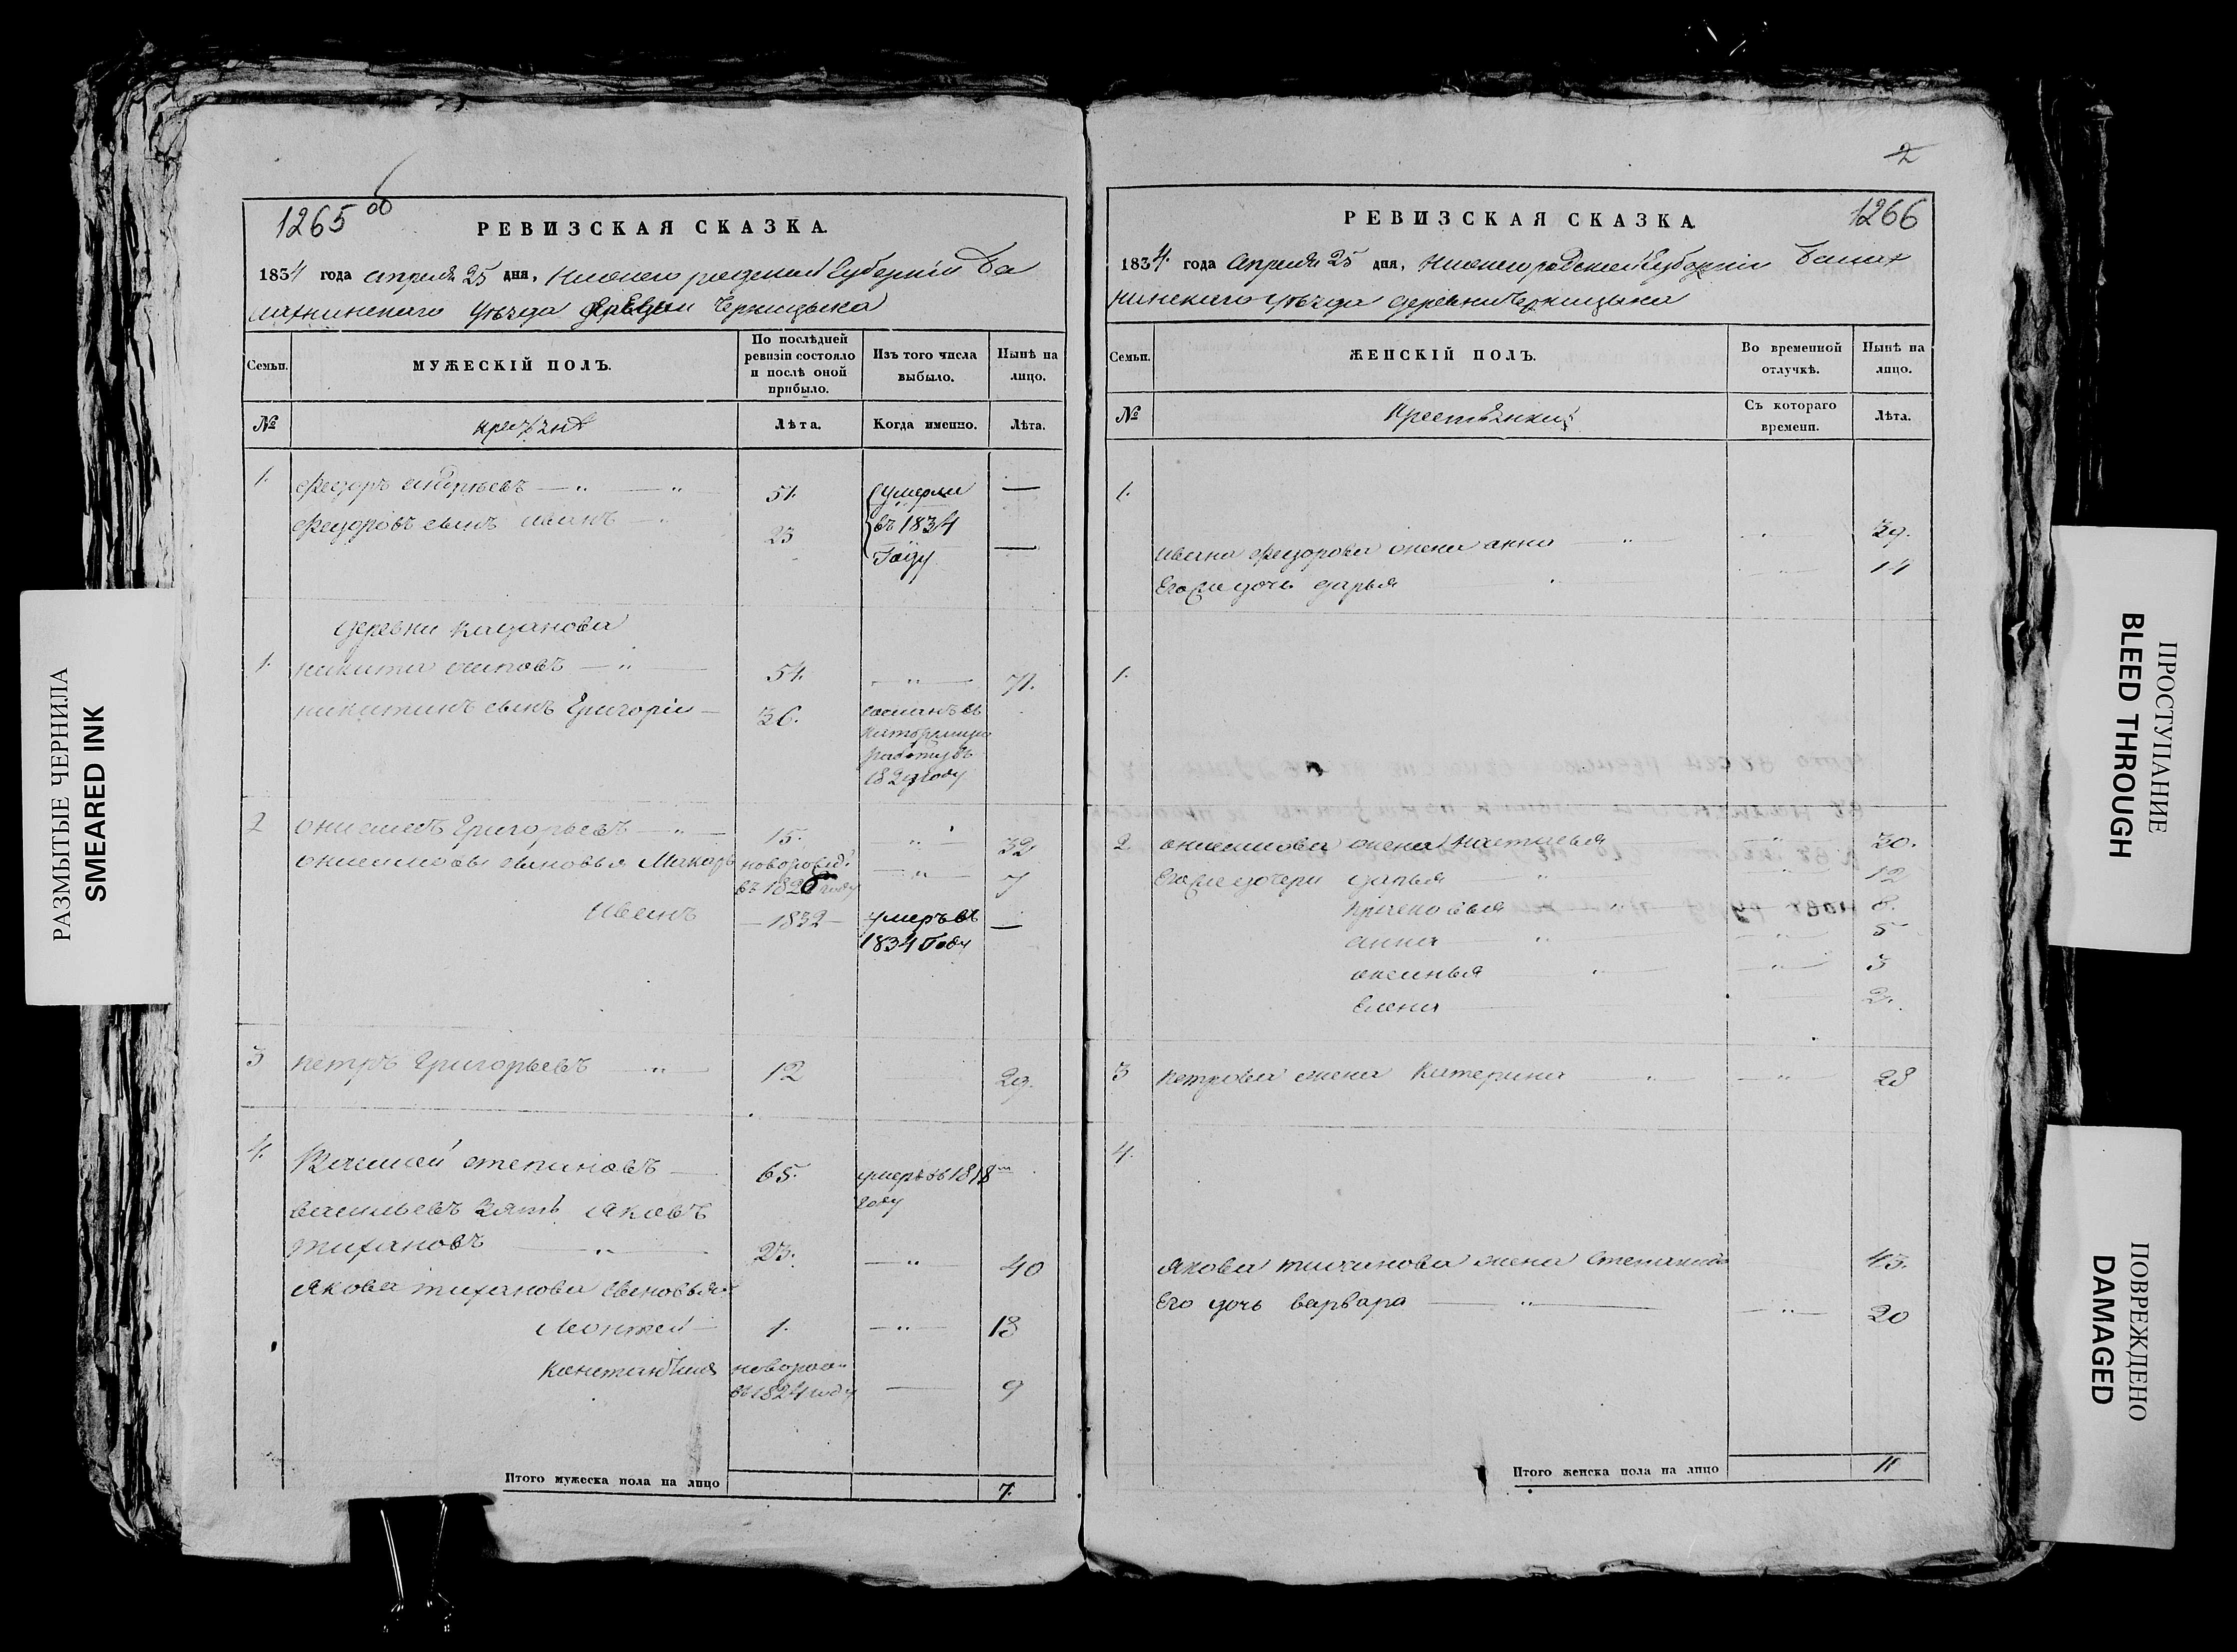 1265 об
РЕВИЗСКАЯ СКАЗКА.
1834 года апреля 25 дня, Нижегородской Губерніи Ба
лахнинского уезда деревни Черницына
Семьи.
МУЖЕСКІЙ ПОЛЪ.
По послѣдней ревизіи состояло и послѣ оной прибыло.
Изъ того числа выбыло.
Нынѣ на лицо.
№
Лѣта.
Когда именно.
Лѣта.
1. Федоръ андреевъ 51. умерли —
Федоровъ сынъ иванъ 23 въ 1834
году —
деревни казанова
1. никита осиповъ 54. 71.
никитинъ сынъ Григорій 36. сосланъ въ
каторжную
работу въ
1829 году
2 онисимъ Григорьевъ 15. 32
онисимовы сыновья Макаръ новорожд.
въ 1826 году 7
Иванъ — 1832 — умеръ въ —
1834 году
3 петръ Григорьевъ 12 29.
4. Василей степановъ 65. умеръ въ 1818м
году
васильевъ зять Яковъ
тихановъ 23. 40
Якова тиханова сыновья
Леонтей 1. 18
Константинъ новорож
въ 1824 году 9
Итого мужеска пола на лицо 7.
2
1266
РЕВИЗСКАЯ СКАЗКА.
1834. года Апреля 25 дня, Нижегородской Губерніи Балах
нинскаго уѣзда деревни Черницына
Семьи.
ЖЕНСКІЙ ПОЛЪ.
Во временной отлучкѣ.
Нынѣ на лицо.
№
Крестьянки
Съ котораго времени.
Лѣта.
1.
ивана Федорова жена анна 39.
Его же дочь дарья 14
1.
2 онисимова жена 30.
Его же дочери дарья 12
8.
анна 5
аксинья 3
Елена 2.
3 петрова жена Катерина 28
4.
Якова тиханова жена Степанида 43.
Его дочь варвара 20
Итого женска пола на лицо 11
РАЗМЫТЫЕ ЧЕРНИЛА
SMEARED INK
ПРОСТУПАНИЕ
BLEED THROUGH
ПОВРЕЖДЕНО
DAMAGED